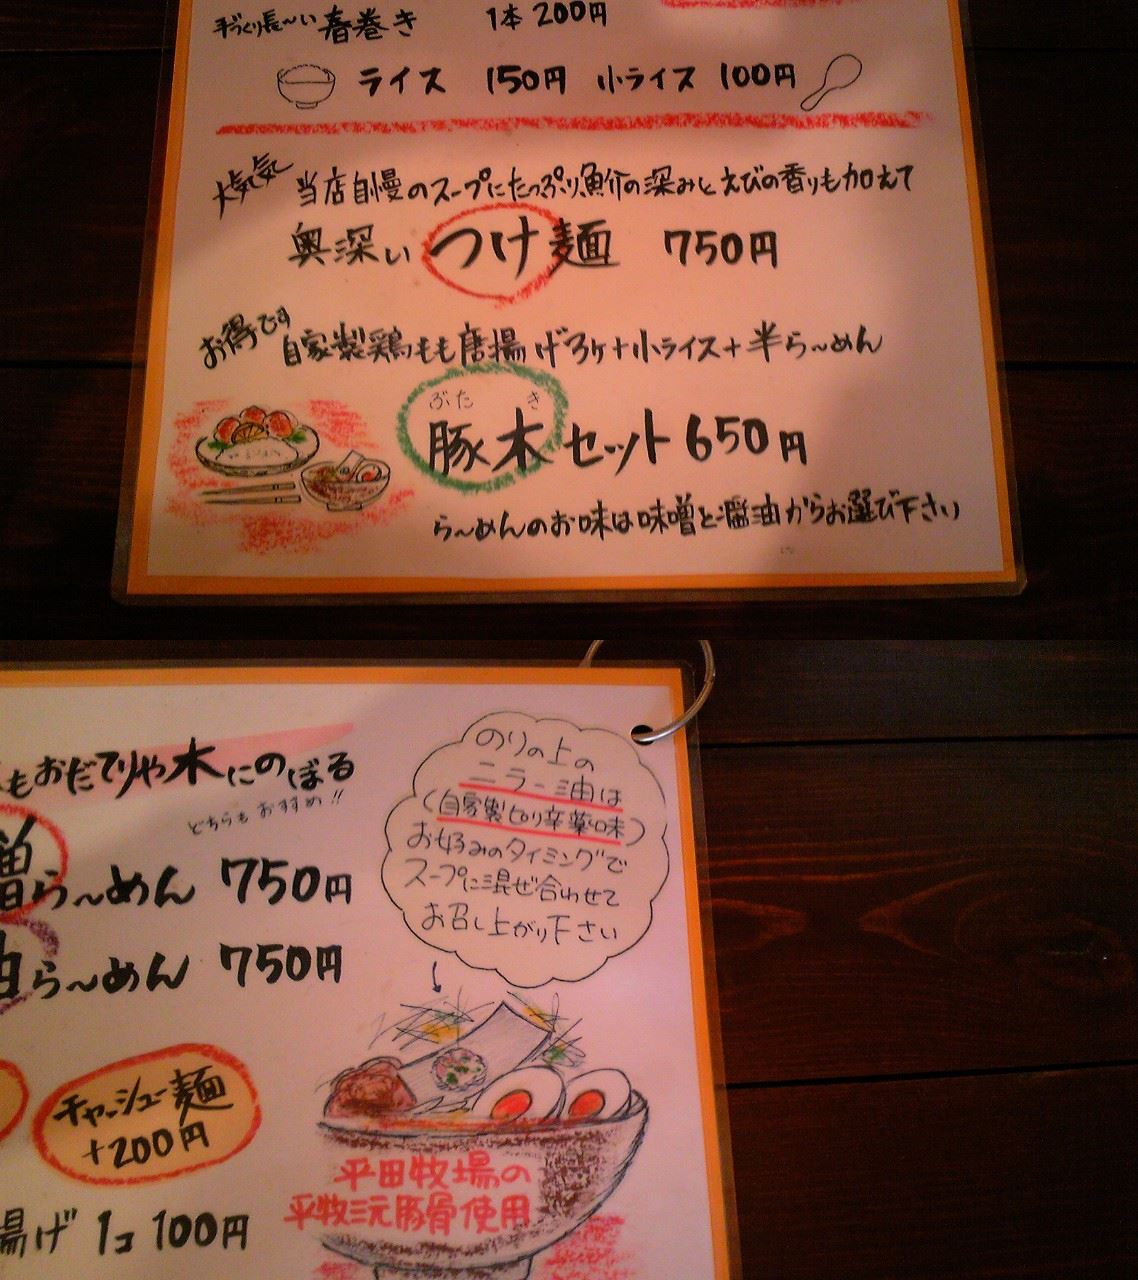 手づくり長〜い 春巻き 1本 200円
ライス 150円 小ライス 100円
大人気 当店自慢のスープにたっぷり魚介の深みとえびの香りも加えて
奥深い つけ麺 750円
お得です 自家製鶏もも唐揚げ3ケ+小ライス+半ら〜めん
ぶた き
豚木セット 650円
ら〜めんのお味は味噌と醤油からお選び下さい
もおだてりゃ木にのぼる
どちらもおすすめ!!
噌ら〜めん 750円
油ら〜めん 750円
チャーシュー麺
+200円
揚げ 1コ 100円
のりの上の
ニラー油は
(自家製ピリ辛薬味)
お好みのタイミングで
スープに混ぜ合わせて
お召し上がり下さい
平田牧場の
平牧三元豚骨使用